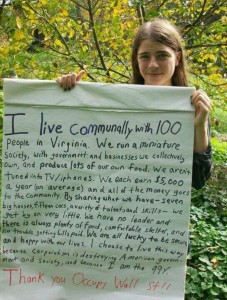 I live communally with 100
people in Virginia. We run a miniature
society, with government and businesses we collectively
own, and produce lots of our own food. We aren't
tuned into TV/iphones. We each earn $5,000
a year (on average) and all of the money goes
to the community. By sharing what we have - seven
big houses, fifteen cars, a variety of talents and skills - we
get by on very little. We have no leader and
there is always plenty of food, comfortable shelter, and
no trouble getting bills paid. We are all lucky to be secure
and happy with our lives. I choose to live this way
because corporatism is destroying American govern-
ment and society, and because I am the 99%.
Thank you Occupy Wall St!!